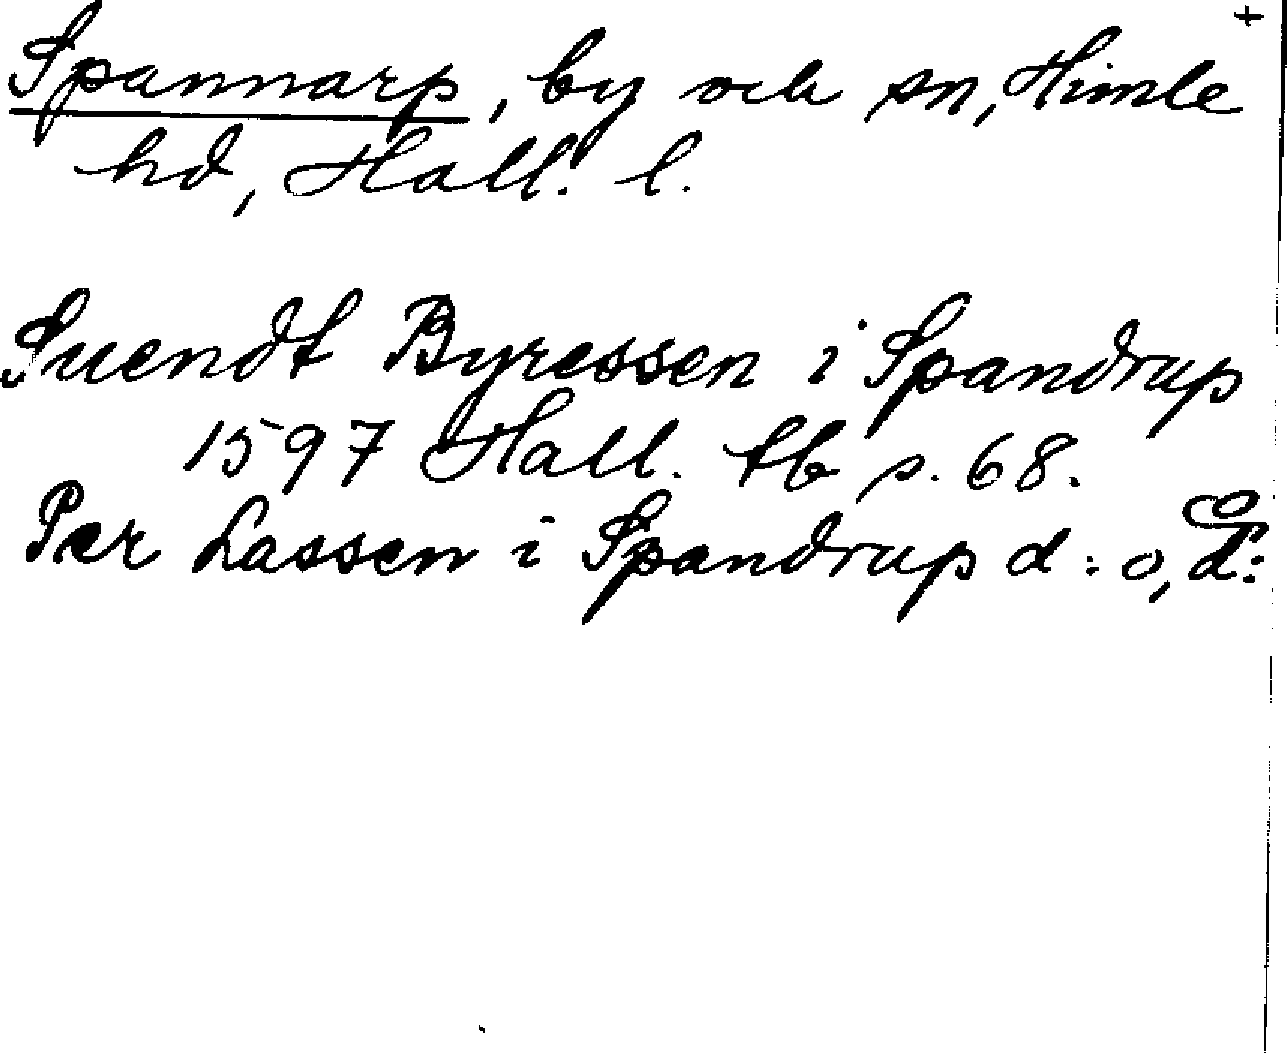 +
Spannarp, by och sn, Himle
hd, Hall. l.
Suendt Byressen i Spandrup
1597 Hall. tb s. 68.
Per Lassen i Spandrup d:o, d:o